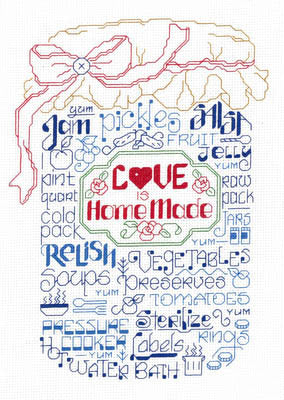 yum
Jam pickles SALSA
FRUIT
yum
JELLY
pint
quart
LOVE
IS
HomeMade
raw
pack
cold
pack
JARS
YUM
RELISH
VEGETABLES
YUM
Soups
preserves
TOMATOES
YUM
PRESSURE
COOKER
Sterilize
YUM
Labels
rings
HOT
WATER BATH
YUM